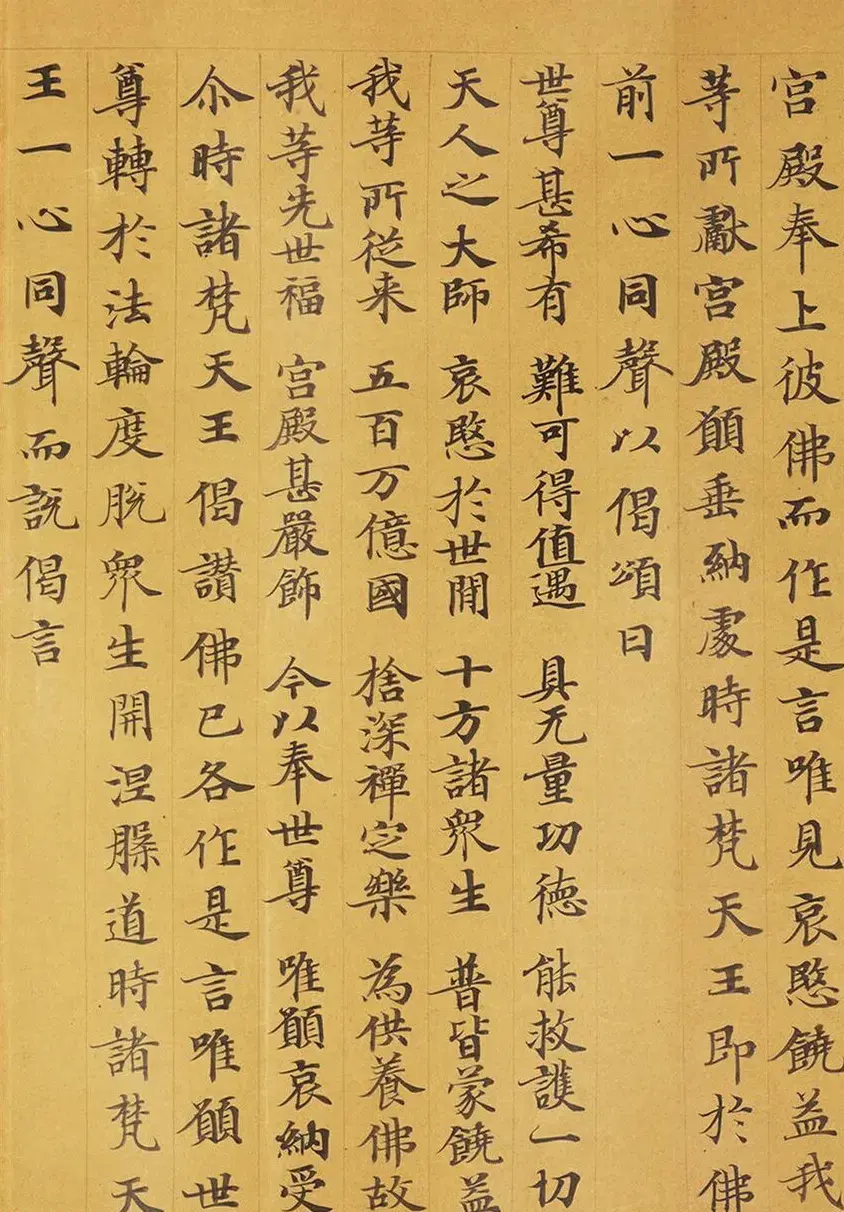 宫殿奉上彼佛而作是言唯见哀愍饒益我
等所獻宫殿願垂納處時諸梵天王即於佛
前一心同聲以偈頌曰
世尊甚希有 難可得值遇 具无量功德 能救護一切
天人之大師 哀愍於世間 十方諸衆生 普皆蒙饒益
我等所從来 五百万億國 捨深禪定樂 為供養佛故
我等先世福 宫殿甚嚴飾 今以奉世尊 唯願哀納受
尒時諸梵天王偈讃佛已各作是言唯願世
尊轉於法輪度脱衆生開涅槃道時諸梵天
王一心同聲而説偈言